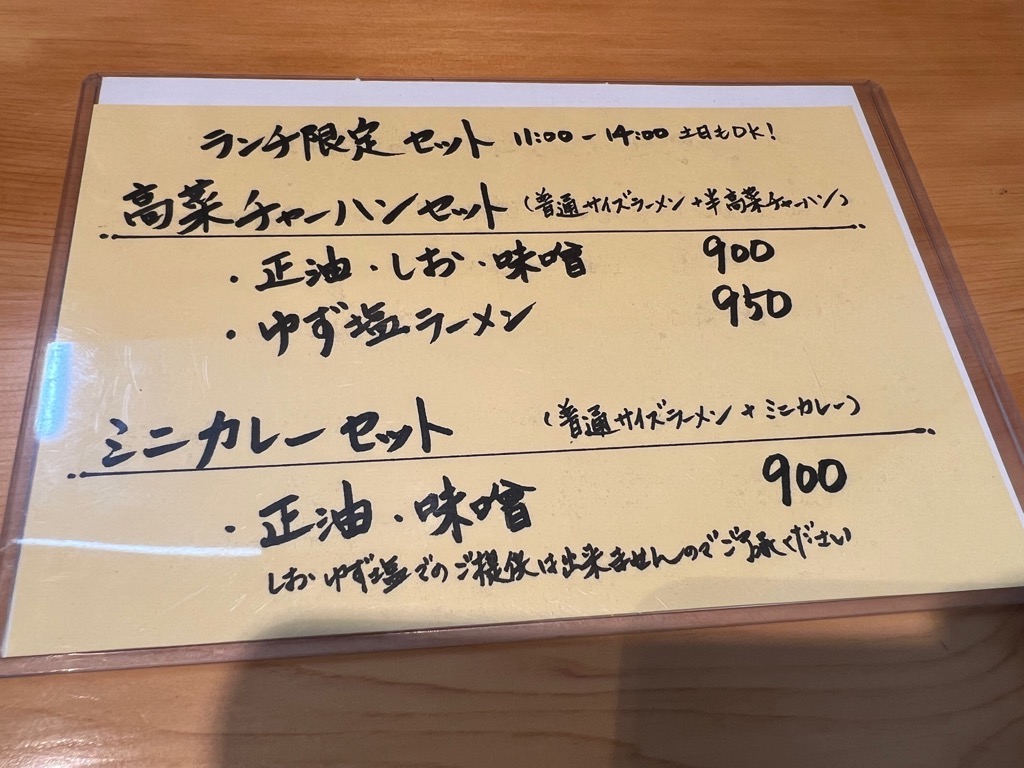 ランチ限定セット 11:00-14:00 土日もOK!
高菜チャーハンセット (普通サイズラーメン+半高菜チャーハン)
・正油・しお・味噌 900
・ゆず塩ラーメン 950
ミニカレーセット (普通サイズラーメン+ミニカレー)
・正油・味噌 900
しおゆず塩でのご提供は出来ませんのでご了承ください